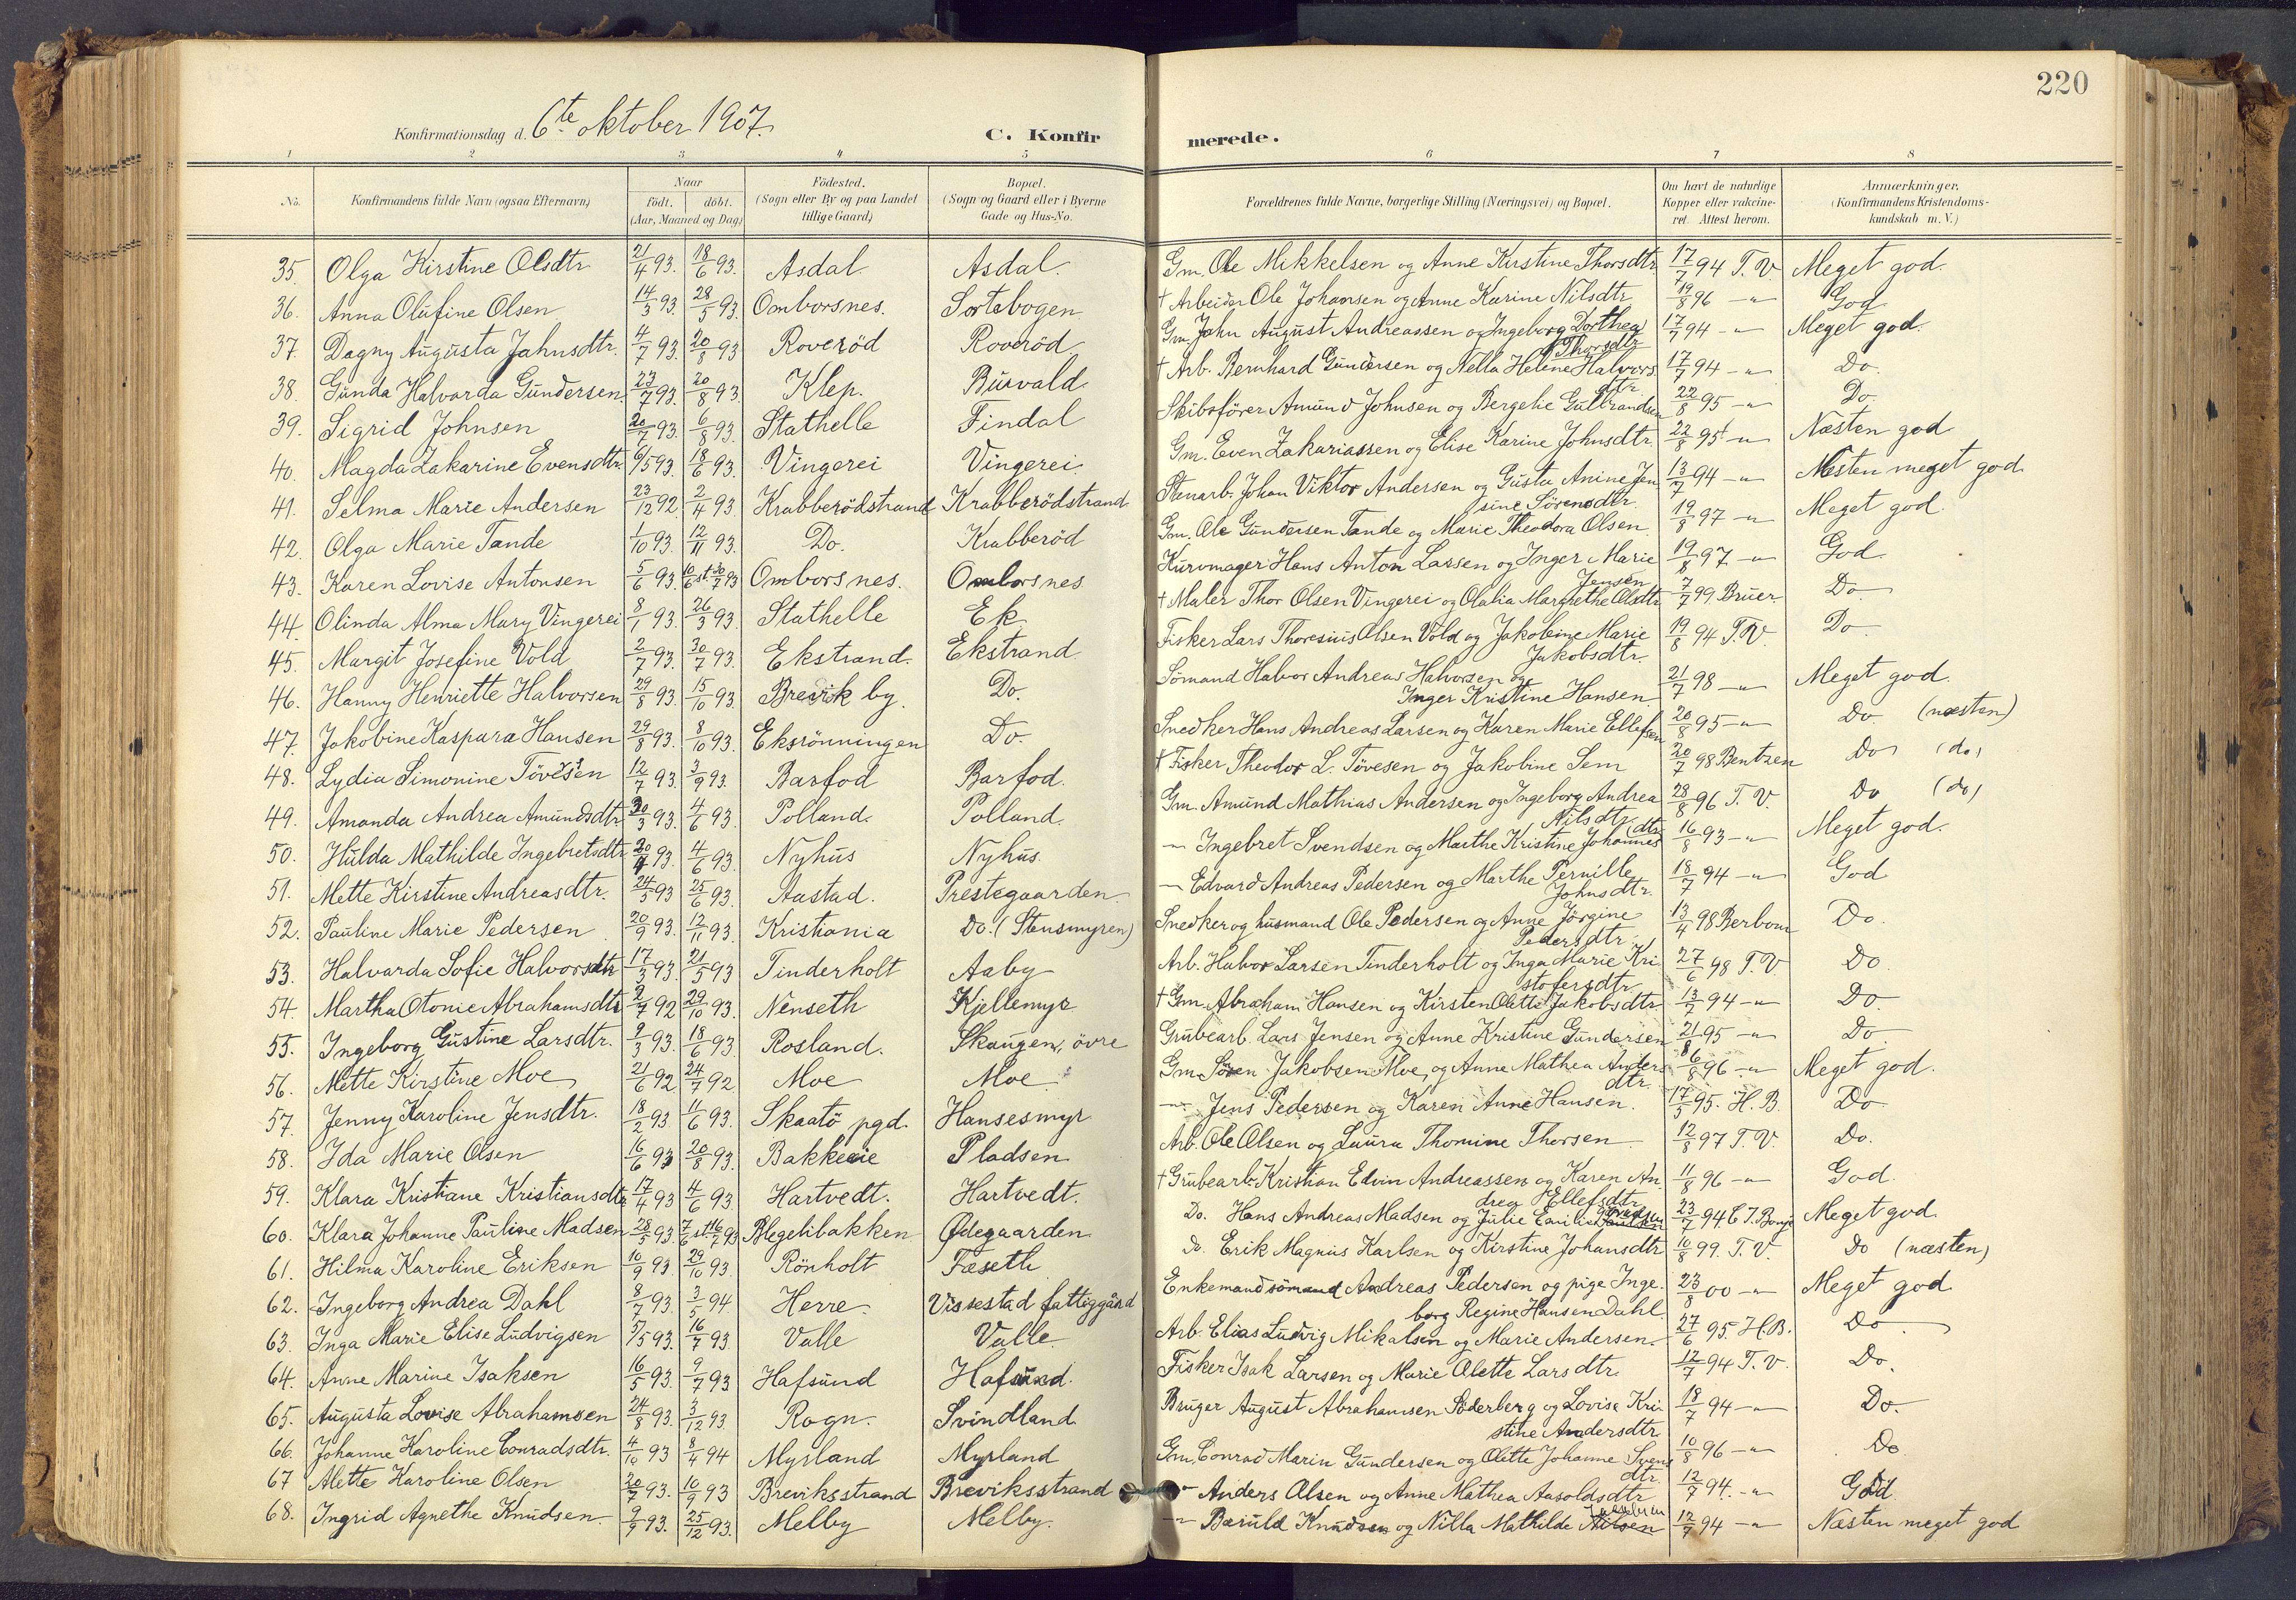 220
Konfirmationsdag d. 6te oktober 1907.
C. Konfirmerede.
1 2 3 4 5 6 7 8
No. Konfirmandens fulde Navn (ogsaa Efternavn) Naar födt. döbt. (Aar, Maaned og Dag) Födested. (Sogn eller By og paa Landet tillige Gaard) Bopæl. (Sogn og Gaard eller i Byerne Gade og Hus-No. Forældrenes fulde Navne, borgerlige Stilling (Næringsvei) og Bopæl. Om havt de naturlige Kopper eller vakcineret. Attest herom. Anmærkninger. (Konfirmandens Kristendomskundskab m. V.)
35. Olga Kirstine Olsdtr 21/4 93. 18/6 93. Asdal Asdal. Gm. Ole Mikkelsen og Anne Kirstine Thorsdtr. 17/7 94 T. V. Meget god.
36. Anna Olufine Olsen 14/3 93. 28/5 93. Omborsnes. Sortebogen † Arbeider Ole Johansen og Anne Karine Nilsdtr 19/8 96 -"- God
37. Dagny Augusta Jahnsdtr. 4/7 93. 20/8 93 Roveröd Roveröd Gm. Jahn August Andreassen og Ingeborg Dorthea Thorsdtr 17/7 94 -"- Meget god.
38. Gunda Halvarda Gundersen 23/7 93. 20/8 93. Klep. Burvald † Arb. Bernhard Gundersen og Nella Helene Halvorsdtr 17/7 94 -"- Do.
39. Sigrid Johnsen 20/7 93. 6/8 93. Stathelle Findal Skibsförer Amund Johnsen og Bergelie Gulbrandsen 22/8 95 -"- Do.
40. Magda Zakarine Evensdtr. 6/5 93 18/6 93. Vingerei Vingerei. Gm. Even Zakariassen og Elise Karine Johnsdtr 22/8 95 -"- Næsten god
41. Selma Marie Andersen 23/12 92. 2/4 93. Krabberödstrand Krabberödstrand Stenarb. Johan Viktor Andersen og Gusta Anine Jensine Sörensdtr. 13/7 94 -"- Næsten meget god.
42. Olga Marie Tande 1/10 93. 12/11 93. Do. Krabberöd Gm. Ole Gundersen Tande og Marie Theodora Olsen 19/8 97 -"- Meget god.
43. Karen Lovise Antonsen 5/6 93. 10/6 st. 30/7 93 Omborsnes. Omborsnes Kurvmager Hans Anton Larsen og Inger Marie Jensen 19/8 97 -"- God
44. Olinda Alma Mary Vingerei 8/1 93. 26/3 93. Stathelle Ek † Maler Thor Olsen Vingerei og Olalia Margrethe Olsdtr 7/7 99 Bruer Do
45. Margit Josefine Vold 2/7 93. 30/7 93. Ekstrand. Ekstrand. Fisker Lars Thoresius Olsen Vold og Jakobine Marie Jakobsdtr. 19/8 94 T.V. Do
46. Hanny Henriette Halvorsen 29/8 93. 15/10 93. Brevik by. Do. Sömand Halvor Andreas Halvorsen og Inger Kristine Hansen 21/7 98 -"- Meget god.
47. Jakobine Kaspara Hansen 29/8 93. 8/10 93. Eksrönningen Do. Snedker Hans Andreas Larsen og Karen Marie Ellefsen 20/8 95 -"- Do. (næsten)
48. Lydia Simonine Tövesen 12/7 93. 3/9 93. Barfod Barfod. † Fisker Theodor L. Tövesen og Jakobine Sem 20/7 98 Bentzen Do (do)
49. Amanda Andrea Amundsdtr 30/3 93. 4/6 93. Polland. Polland. Gm. Amund Mathias Andersen og Ingeborg Andrea Nilsdtr. 28/8 96 T. V. Do (do)
50. Hulda Mathilde Ingebretsdtr 20/4 93. 4/6 93. Nyhus Nyhus. -"- Ingebret Svendsen og Marthe Kristine Johannesdtr 16/8 93 -"- Meget god.
51. Mette Kirstine Andreasdtr. 24/5 93 25/6 93. Aastad. Prestegaarden -"- Edvard Andreas Pedersen og Marthe Pernille Johnsdtr. 18/7 94 -"- God
52. Pauline Marie Pedersen 20/9 93. 12/11 93. Kristiania Do. (Stensmyren) Snedker og husmand Ole Pedersen og Anne Jörgine Pedersdtr. 13/4 98 Berbom Do.
53. Halvarda Sofie Halvorsdtr 17/3 93. 21/5 93 Tinderholt Aaby Arb. Halvor Larsen Tinderholt og Inga Marie Kristofersdtr. 27/6 98 T.V Do
54. Martha Otonie Abrahamsdtr 2/7 92 29/10 93. Nenseth Kjellemyr † Gm. Abraham Hansen og Kirsten Olette Jakobsdtr. 13/7 94 -"- Do
55. Ingeborg Gustine Larsdtr. 9/3 93. 18/6 93. Rosland. Skaugen, övre Grubearb. Lars Jensen og Anne Kristine Gundersen 21/8 95 -"- Do
56. Mette Kirstine Moe 21/6 92. 24/7 92 Moe Moe Gm. Sören Jakobsen Moe, og Anne Mathea Andersdtr. 6/8 96 -"- Meget god.
57. Jenny Karoline Jensdtr. 18/2 93. 11/6 93. Skaatö pgd. Hansesmyr -"- Jens Pedersen og Karen Anne Hansen. 17/5 95. H. B. Do
58. Ida Marie Olsen 16/6 93 20/8 93. Bakkeeie Pladsen Arb. Ole Olsen og Laura Thomine Thorsen 12/8 97 T. V. Do.
59. Klara Kristiane Kristiansdtr 17/4 93 4/6 93. Hartvedt. Hartvedt. † Grubearb. Kristian Edvin Andreassen og Karen Andrea Ellefsdtr 11/8 96 -"- God.
60. Klara Johanne Pauline Madsen 28/5 93. 7/6 st 16/7 93 Blegelibakken Ødegaarden Do. Hans Andreas Madsen og Julie Emilie 23/7 94 Meget god.
61. Hilma Karoline Eriksen 10/9 93. 29/10 93. Rönholt Fæseth Do. Erik Magnus Karlsen og Kirstine Johansdtr 10/8 99. T. V. Do (næsten)
62. Ingeborg Andrea Dahl 8/7 93. 3/5 94 Herre. Vissestad fattiggård Enkemand sömand Andreas Pedersen og pige Ingeborg Regine Hansen Dahl. 23/8 00 -"- Meget god
63. Inga Marie Elise Ludvigsen 5/5 93. 16/7 93. Valle Valle Arb. Elias Ludvig Mikalsen og Marie Andersen. 27/6 95. H.B. Do
64. Anne Marine Isaksen 16/5 93. 9/7 93 Hafsund Hafsund. Fisker Isak Larsen og Marie Olette Larsdtr. 12/7 94 T. V. Do.
65. Augusta Lovise Abrahamsen 24/8 93. 3/12 93 Rogn. Svindland. Bruger August Abrahamsen Söderberg og Lovise Kristine Andersdtr 18/7 94 -"- Do.
66. Johanne Karoline Conradsdtr. 4/10 93 8/4 94 Myrland Myrland Gm. Conrad Marin Gundersen og Olette Johanne Svensdtr. 10/8 96 -"- Do
67 Alette Karoline Olsen 20/7 93. 10/9 93 Breviksstrand Breviksstrand -"- Anders Olsen og Anne Mathea Aasoldsdtr 12/7 94. -"- God
68. Ingrid Agnethe Knudsen. 9/9 93. 25/12 93. Melby Melby. -"- Bæruld Knudsen og Nilla Mathilde 12/7 94 -"- Næsten meget god